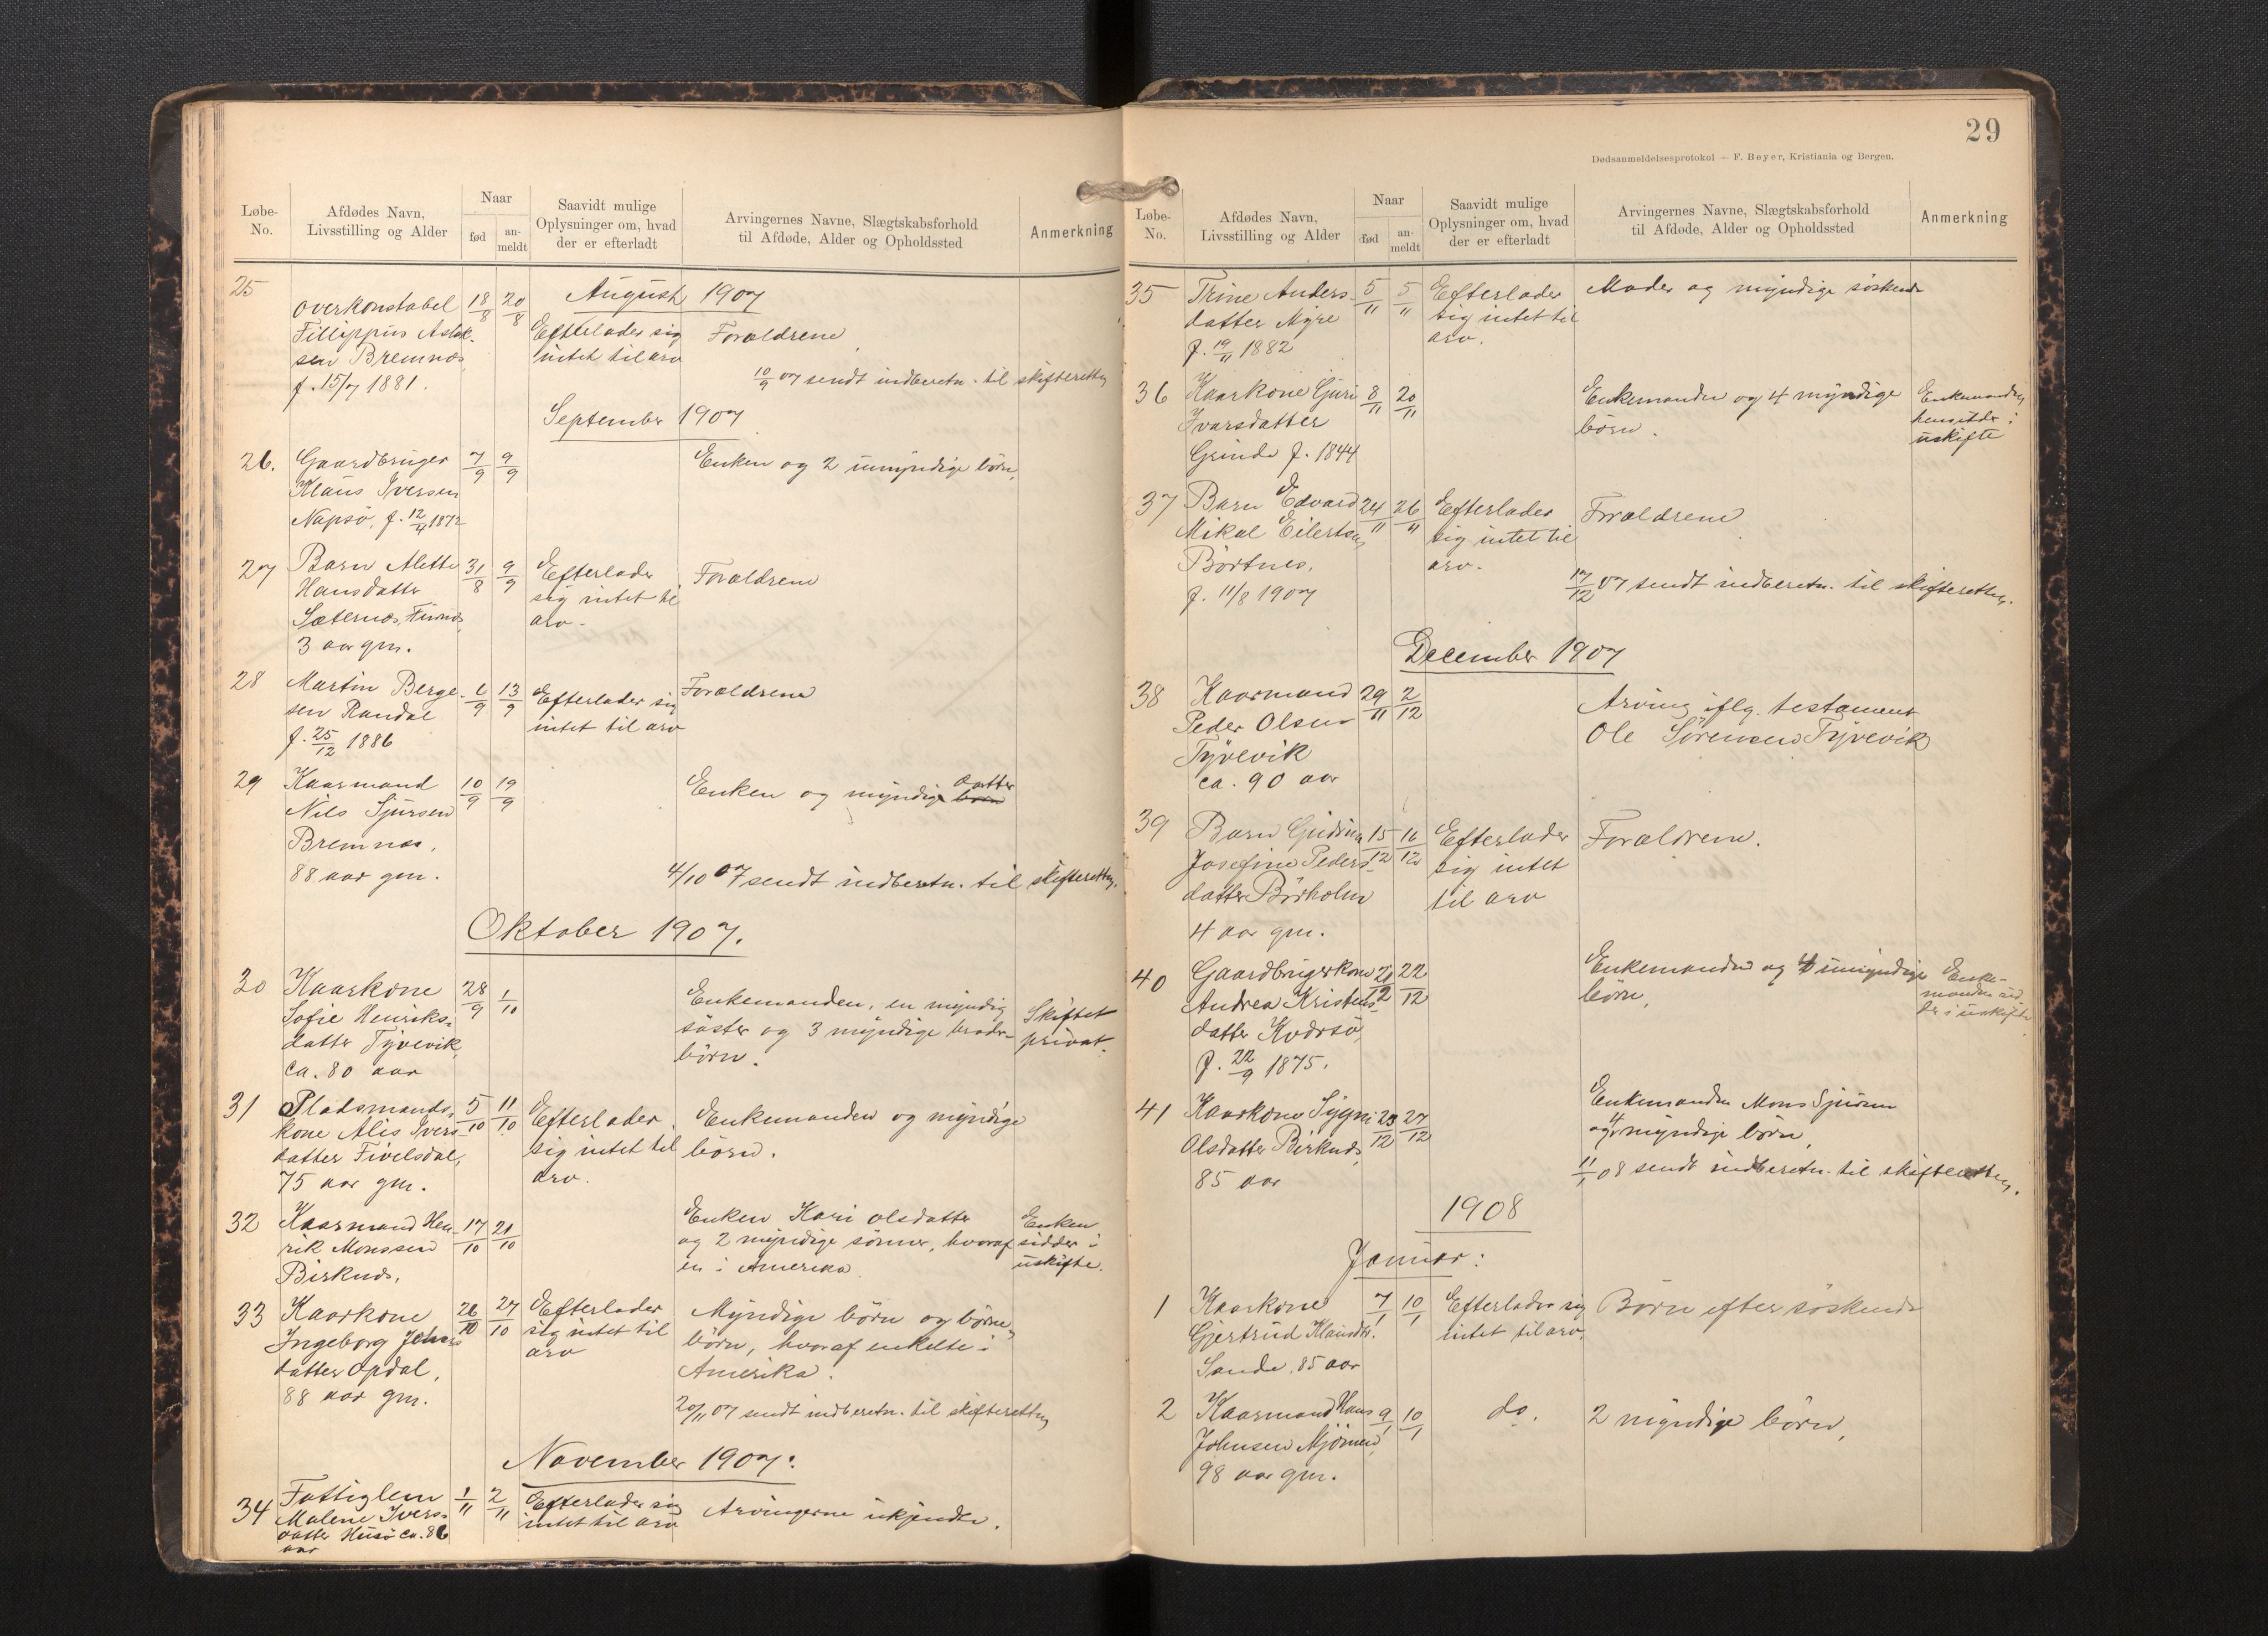 Løbe-
No.
Afdødes Navn,
Livsstilling og Alder
Naar
fød
an-
meldt
Saavidt mulige
Oplysninger om, hvad
der er efterladt
Arvingernes Navne, Slægtskabsforhold
til Afdøde, Alder og Opholdssted
Anmerkning
August 1907
25
Overkonstabel 18/8 20/8
Fillippus Aslak- Efterlader sig Forældrene
sen Bremnes intet til arv
f. 15/7 1881.
10/9 07 sendt indberetn. til skifteretten
September 1907
26. Gaardbruger 7/9 9/9 Enken og 2 umyndige børn,
Klaus Iversen
Napsø, f. 12/4 1872
27 Barn Alette 31/8 9/9 Efterlader Forældrene
Hansdatter sig intet til
Sæternes, arv.
3 aar gm.
28 Martin Berge- 6/9 13/9 Efterlader sig Forældrene
sen Randal intet til arv
f. 25/12 1886
29 Kaarmand 10/9 19/9 Enken og myndige datter
Nils Sjursen
Bremnes,
88 aar gm.
4/10 07 sendt indberetn. til skifteretten.
Oktober 1907.
30 Kaarkone 28/9 1/10 Enkemanden, en myndig Skiftet
Sofie Henriks- søster og 3 myndige broder- privat.
datter Tyvevik, børn.
ca. 80 aar
31 Pladsmands- 5/10 11/10 Efterlader Enkemanden og myndige
kone Alis Ivers- sig intet til børn.
datter Fivelsdal, arv.
75 aar gm.
32 Kaarmand Hen- 17/10 21/10 Enken Kari Olsdatter Enken
rik Monssen og 2 myndige sønner, hvoraf sidder i
Birknes, en i Amerika uskifte.
33 Kaarkone 26/10 27/10 Efterlader Myndige børn og børne-
Ingeborg Johans- sig intet til børn, hvoraf enkelte i
datter Opdal, arv Amerika.
88 aar gm.
20/11 07 sendt indberetn. til skifteretten
November 1907.
34 Fattiglem 1/11 2/11 Efterlader sig Arvingerne ukjendte.
Malene Ivers- intet til arv
datter Husø ca. 86
aar
29
Dødsanmeldelsesprotokol — F. Beyer, Kristiania og Bergen.
Løbe-
No.
Afdødes Navn,
Livsstilling og Alder
Naar
fød
an-
meldt
Saavidt mulige
Oplysninger om, hvad
der er efterladt
Arvingernes Navne, Slægtskabsforhold
til Afdøde, Alder og Opholdssted
Anmerkning
35 Trine Anders- 5/11 5/11 Efterlader Moder og myndige søskende
datter Myre sig intet til
f. 19/11 1882 arv.
36 Kaarkone Guri 8/11 20/11 Enkemanden og 4 myndige Enkemanden
Ivarsdatter børn. hensitder i
Grinde f. 1844 uskifte
37 Barn Edvard 24/11 26/11 Efterlader Forældrene
Mikal Eilertsen sig intet til
Børtnes, arv.
f. 11/8 1907
17/12 07 sendt indberetn. til skifteretten.
December 1907
38 Kaarmand 29/11 2/12 Arving iflg. testament
Peder Olsen Ole Sørensen Tyvevik
Tyvevik
ca. 90 aar
39 Barn Gudrina 15/12 16/12 Efterlader Forældrene.
Josefine Peders- sig intet
datter Børholm til arv
4 aar gm.
40 Gaardbrugerkone 20/12 22/12 Enkemanden og 4 umyndige Enke-
Andrea Kristens- børn, manden sid-
datter Kversø, der i uskifte
f. 22/9 1875.
41 Kaarkone Sygni 23/12 27/12 Enkemanden Mons Sjursen
Olsdatter Birknes, og 4 myndige børn,
85 aar
11/1 08 sendt indberetn. til skifteretten.
1908
Januar:
1 Kaarkone 7/1 10/1 Efterlader sig Børn efter søskende
Gjertrud Klausdtr. intet til arv.
Sande, 85 aar
2 Kaarmand Hans 9/1 10/1 do. 2 myndige børn,
Johnsen Mjømen,
98 aar gm.